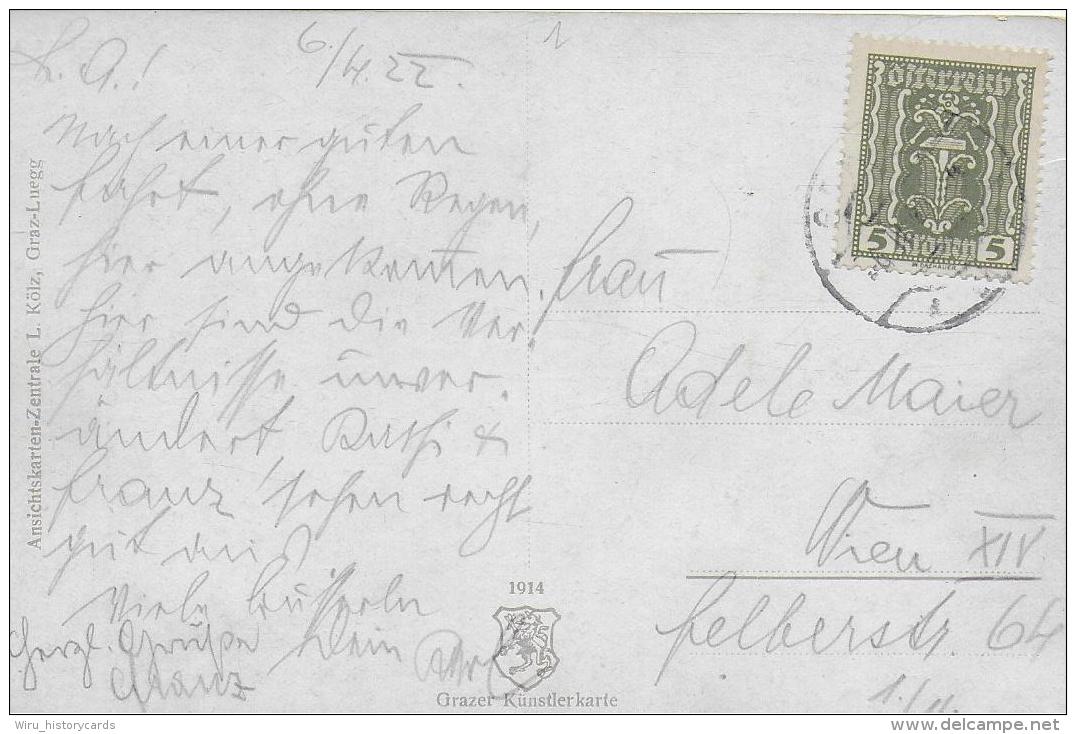 L. A.!
6./4. 22.
1
Nach einer guten
Fahrt, ohne Regen,
hier angekommen.
Hier sind die Ver-
hältnisse unver-
ändert, Kathi &
Franz sehen recht
gut aus
Viele Busserln
Dein
Herzl. Grüße
Franz
Frau
Adele Maier
Wien XIV
Felberstr. 64
Österreich
5 Kronen 5
Ansichtskarten-Zentrale L. Kölz, Graz-Luegg
1914
Grazer Künstlerkarte
Wiru_historycards
delcampe.net